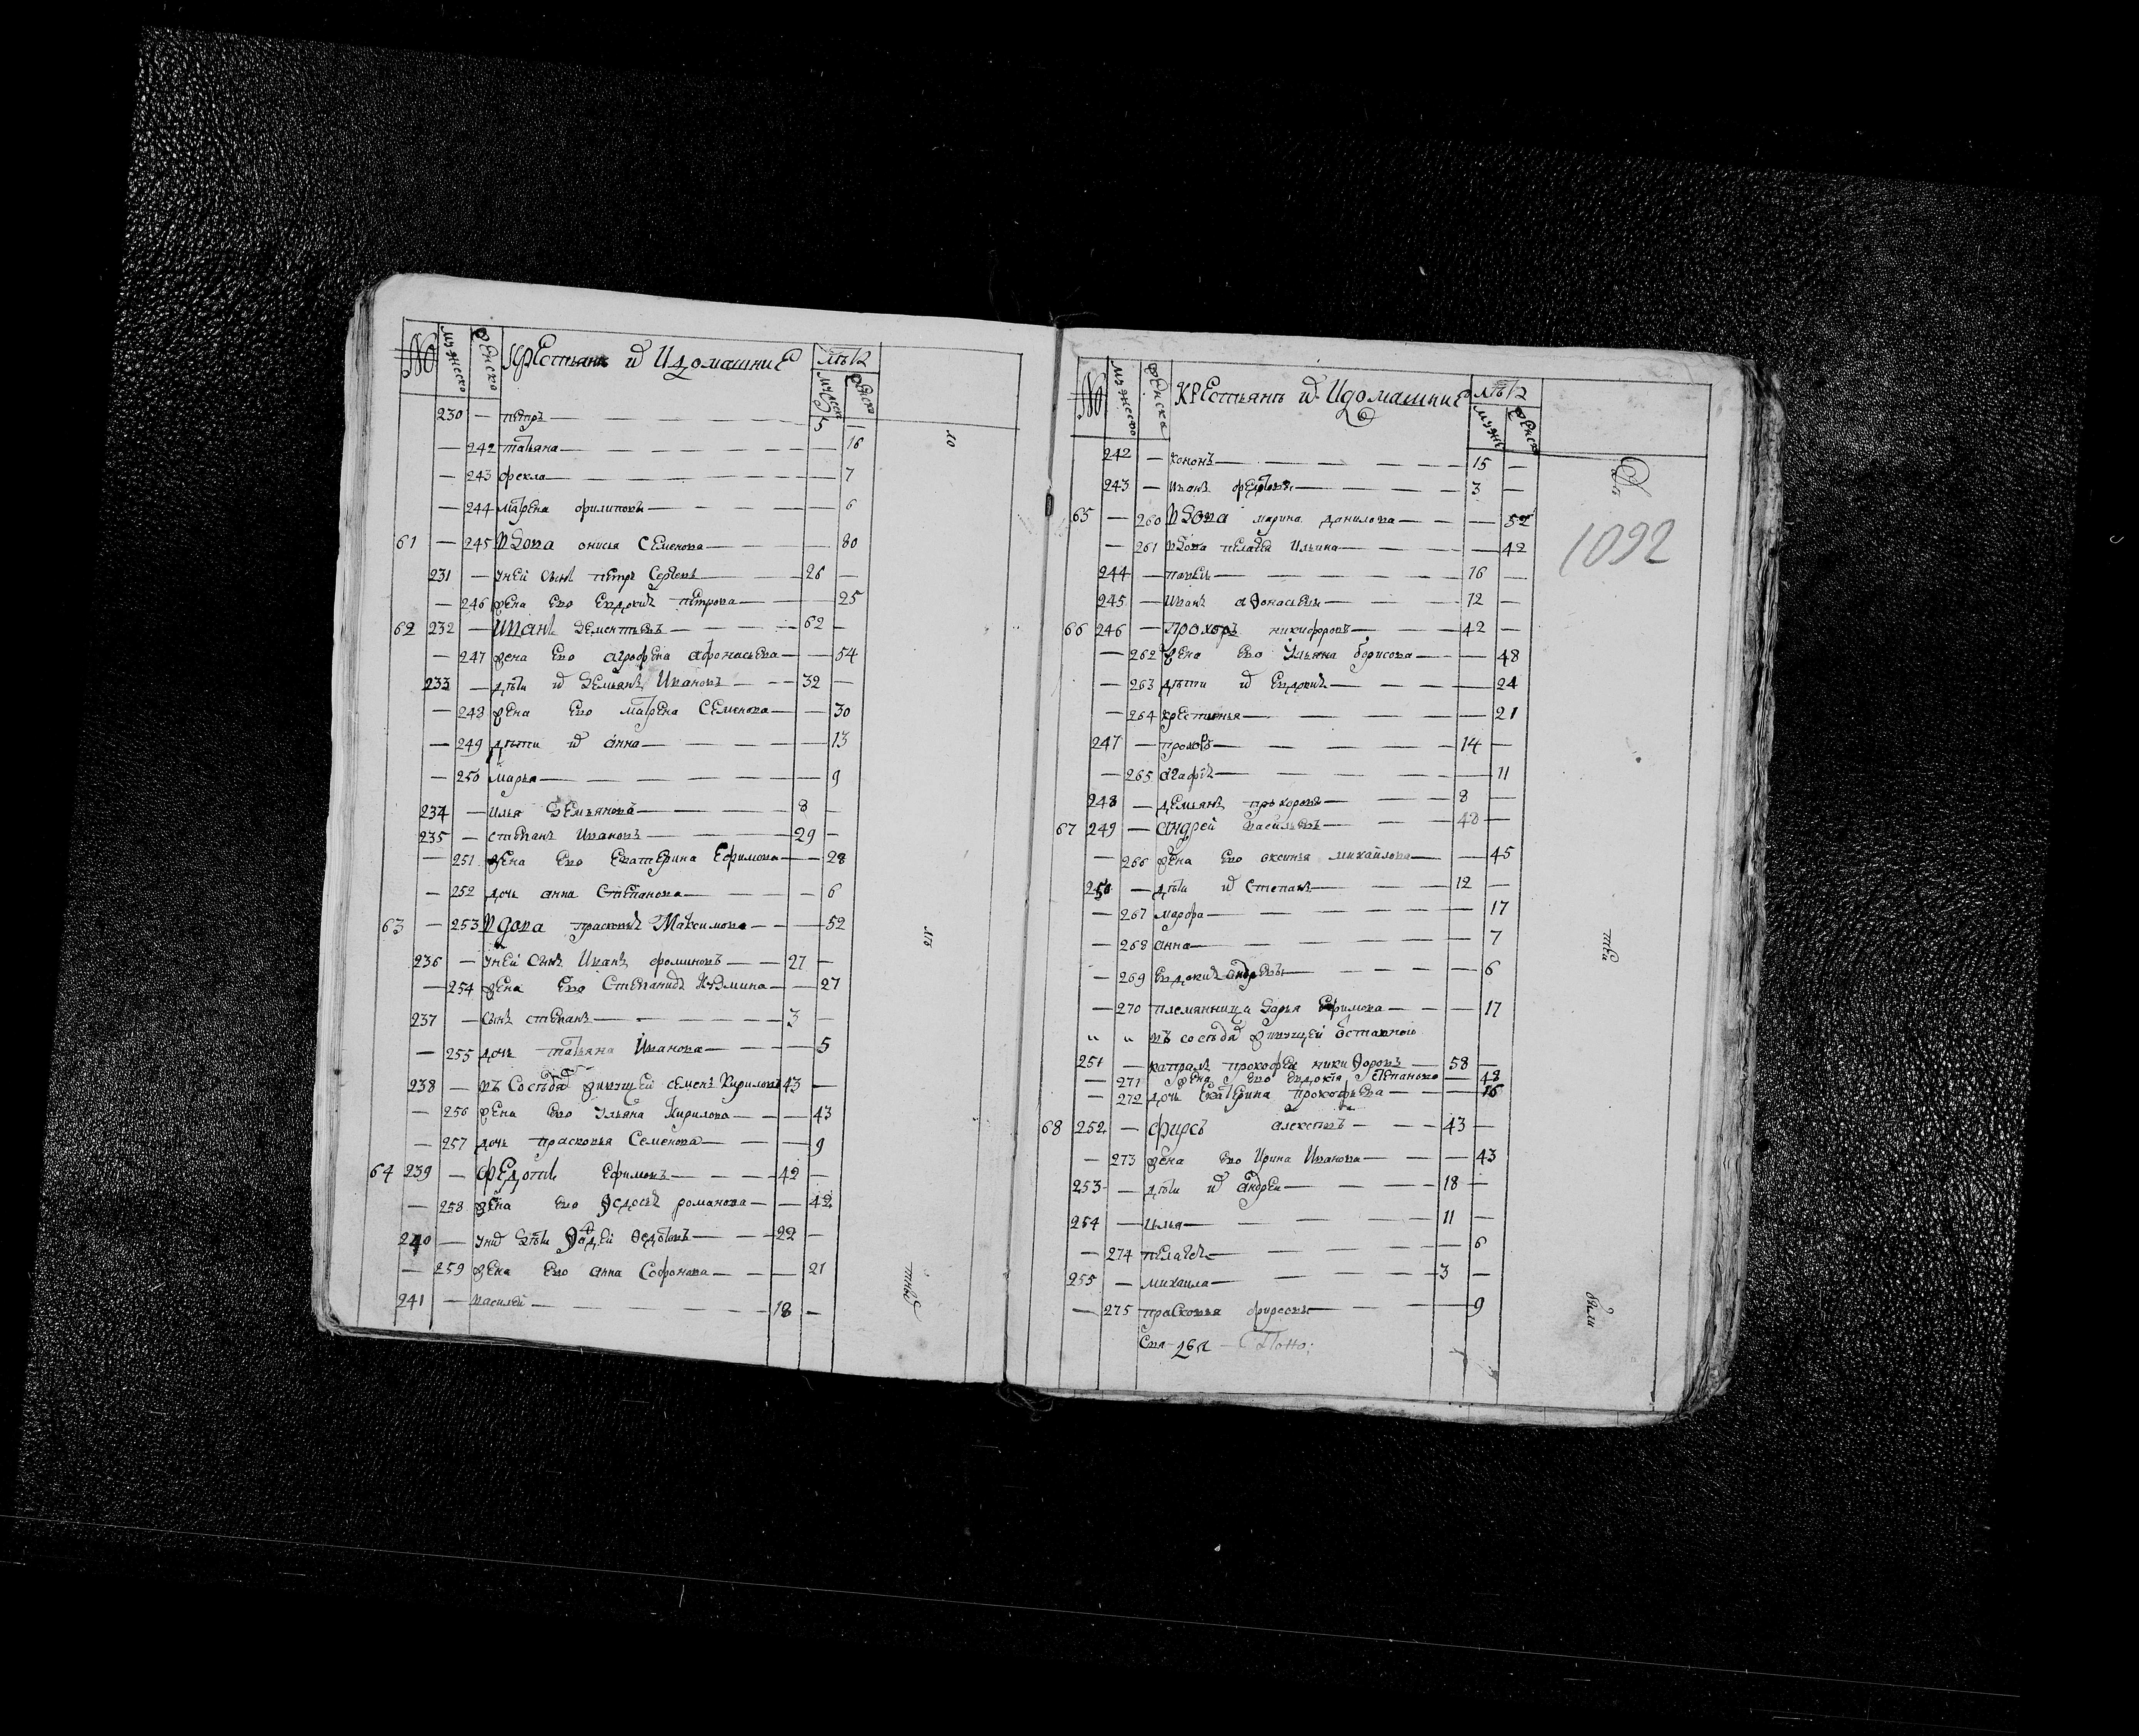 № мужеско женско Крестьянъ и Идомашние лѣтъ
мужеска женско
230 — петръ — 5 —
— 242 татьяна — — 16
— 243 фекла — — 7
— 244 матрена филиповы — — 6
61 — 245 Вдова онисья Семенова — — 80
231 — унеи сынъ петръ Сергѣевъ — 26 —
— 246 жена Ево Евдокиѣ петрова — — 25
62 232 — Иванъ дементьевъ — 62 —
— 247 жена Ево аграфена афонасьева — — 54
233 — дѣти ихъ демьянъ Ивановъ — 32 —
— 248 жена Ево матрена Семенова — — 30
— 249 дѣти ихъ анна — — 13
— 250 марья — — 9
234 — илья демьяновы — 8 —
235 — степанъ Ивановъ — 29 —
— 251 жена Ево Екатерина Ефимова — — 28
— 252 дочь анна Степанова — — 6
63 — 253 Вдова прасковьѣ Максимова — — 52
236 — унеи Сынъ Иванъ фоминовъ — 27 —
— 254 жена Ево Степанидѣ Кузмина — — 27
237 — сынъ степанъ — 3 —
— 255 дочь татьяна Иванова — — 5
238 — въ Сосѣдяхъ живущей семенъ Кириловъ 43 —
— 256 жена Ево Ульяна Кирилова — — 43
— 257 дочь прасковья Семенова — — 9
64 239 — Федотъ Ефимовъ — 42 —
— 258 жена Ево Ѳедосьѣ романова — — 42
240 — унихъ дѣти Ѳадѣй Ѳедотовъ — 22 —
— 259 жена Ево анна Софронова — — 21
241 — Василей — 18 —
№ мужеско женска Крестьянъ и Идомашние лѣтъ
муже женск
242 — кононъ — 15 —
243 — Иванъ федотовы — 3 —
65 — 260 Вдова марина данилова — — 52
— 261 вдова пелагея Ильина — — 42
244 — павелъ — 16 —
245 — Иванъ аѳонасьевы — 12 —
66 246 — Прохоръ никифоровъ — 42 —
— 262 жена Ево Ульяна борисова — — 48
— 263 дѣти ихъ Евдокиѣ — — 24
— 264 крестинья — — 21
247 — прохоръ — 14 —
— 265 агафіѣ — — 11
248 — демьянъ прохоровы — 8 —
67 249 — андрей васильевъ — 48 —
— 266 жена Ево оксинья михайлова — — 45
250 — дѣти ихъ Степанъ — 12 —
— 267 марфа — — 17
— 268 анна — — 7
— 269 Евдокиѣ андревы — — 6
— 270 племянница дарья Ефимова — — 17
" " въ сосѣдяхъ живущей отставной
251 — капралъ прокофеи никиѳоровъ — 58 —
— 271 жена Ево Евдокія Степанова — — 48
— 272 дочь Екатерина прокофьева — — 16
68 252 — Фирсъ алексѣевъ — 43 —
— 273 жена Ево Ирина Иванова — — 43
253 — дѣти ихъ андрей — 18 —
254 — Илья — 11 —
— 274 пелагеѣ — — 6
255 — михаила — 3 —
— 275 прасковья фирсовы — — 9
1092
были